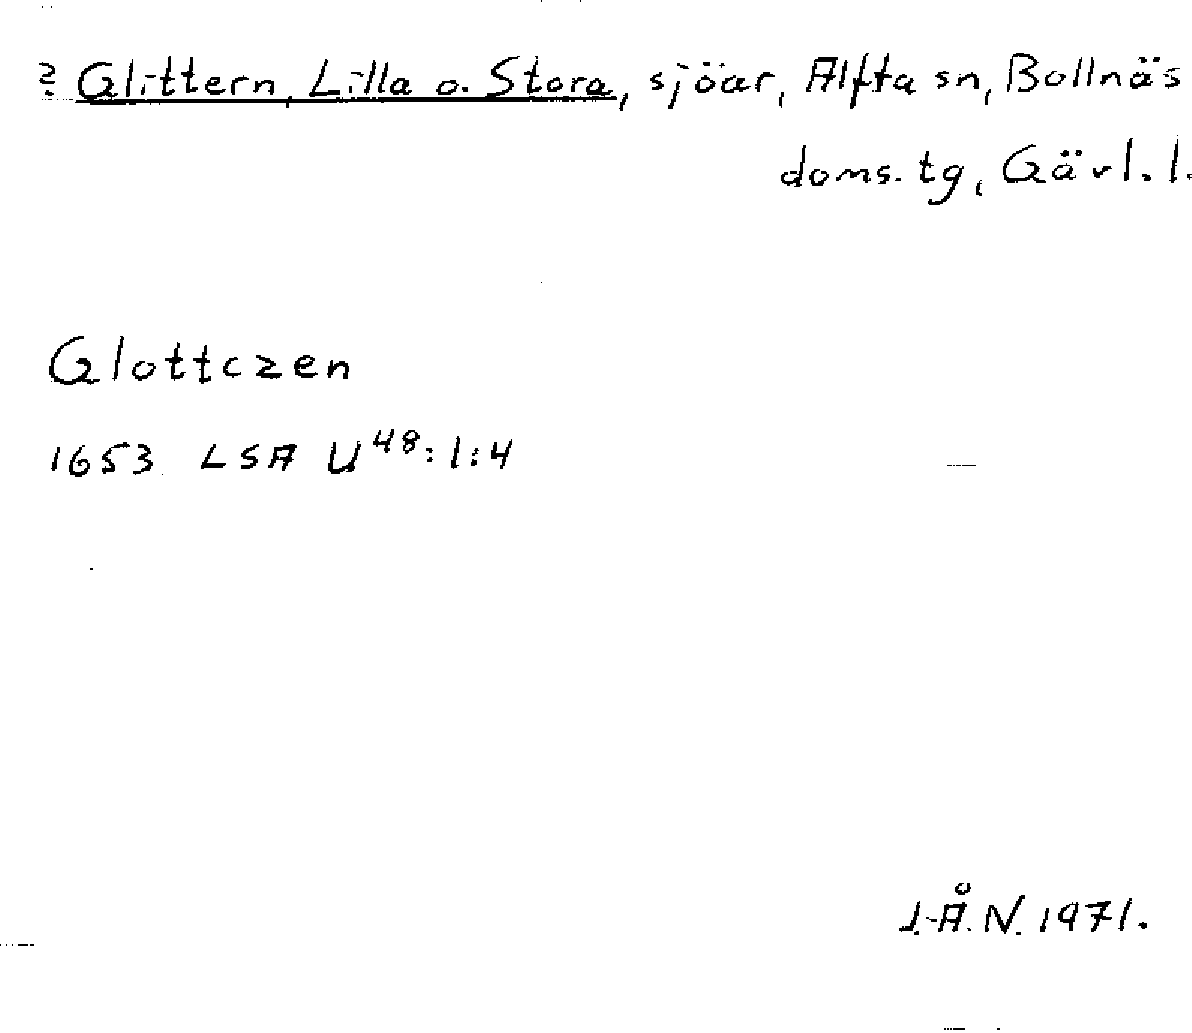 ? Glittern, Lilla o. Stora, sjöar, Alfta sn, Bollnäs
doms. tg, Gävl. l.
Glottczen
1653 LSA U48:1:4
J.-Å. N. 1971.